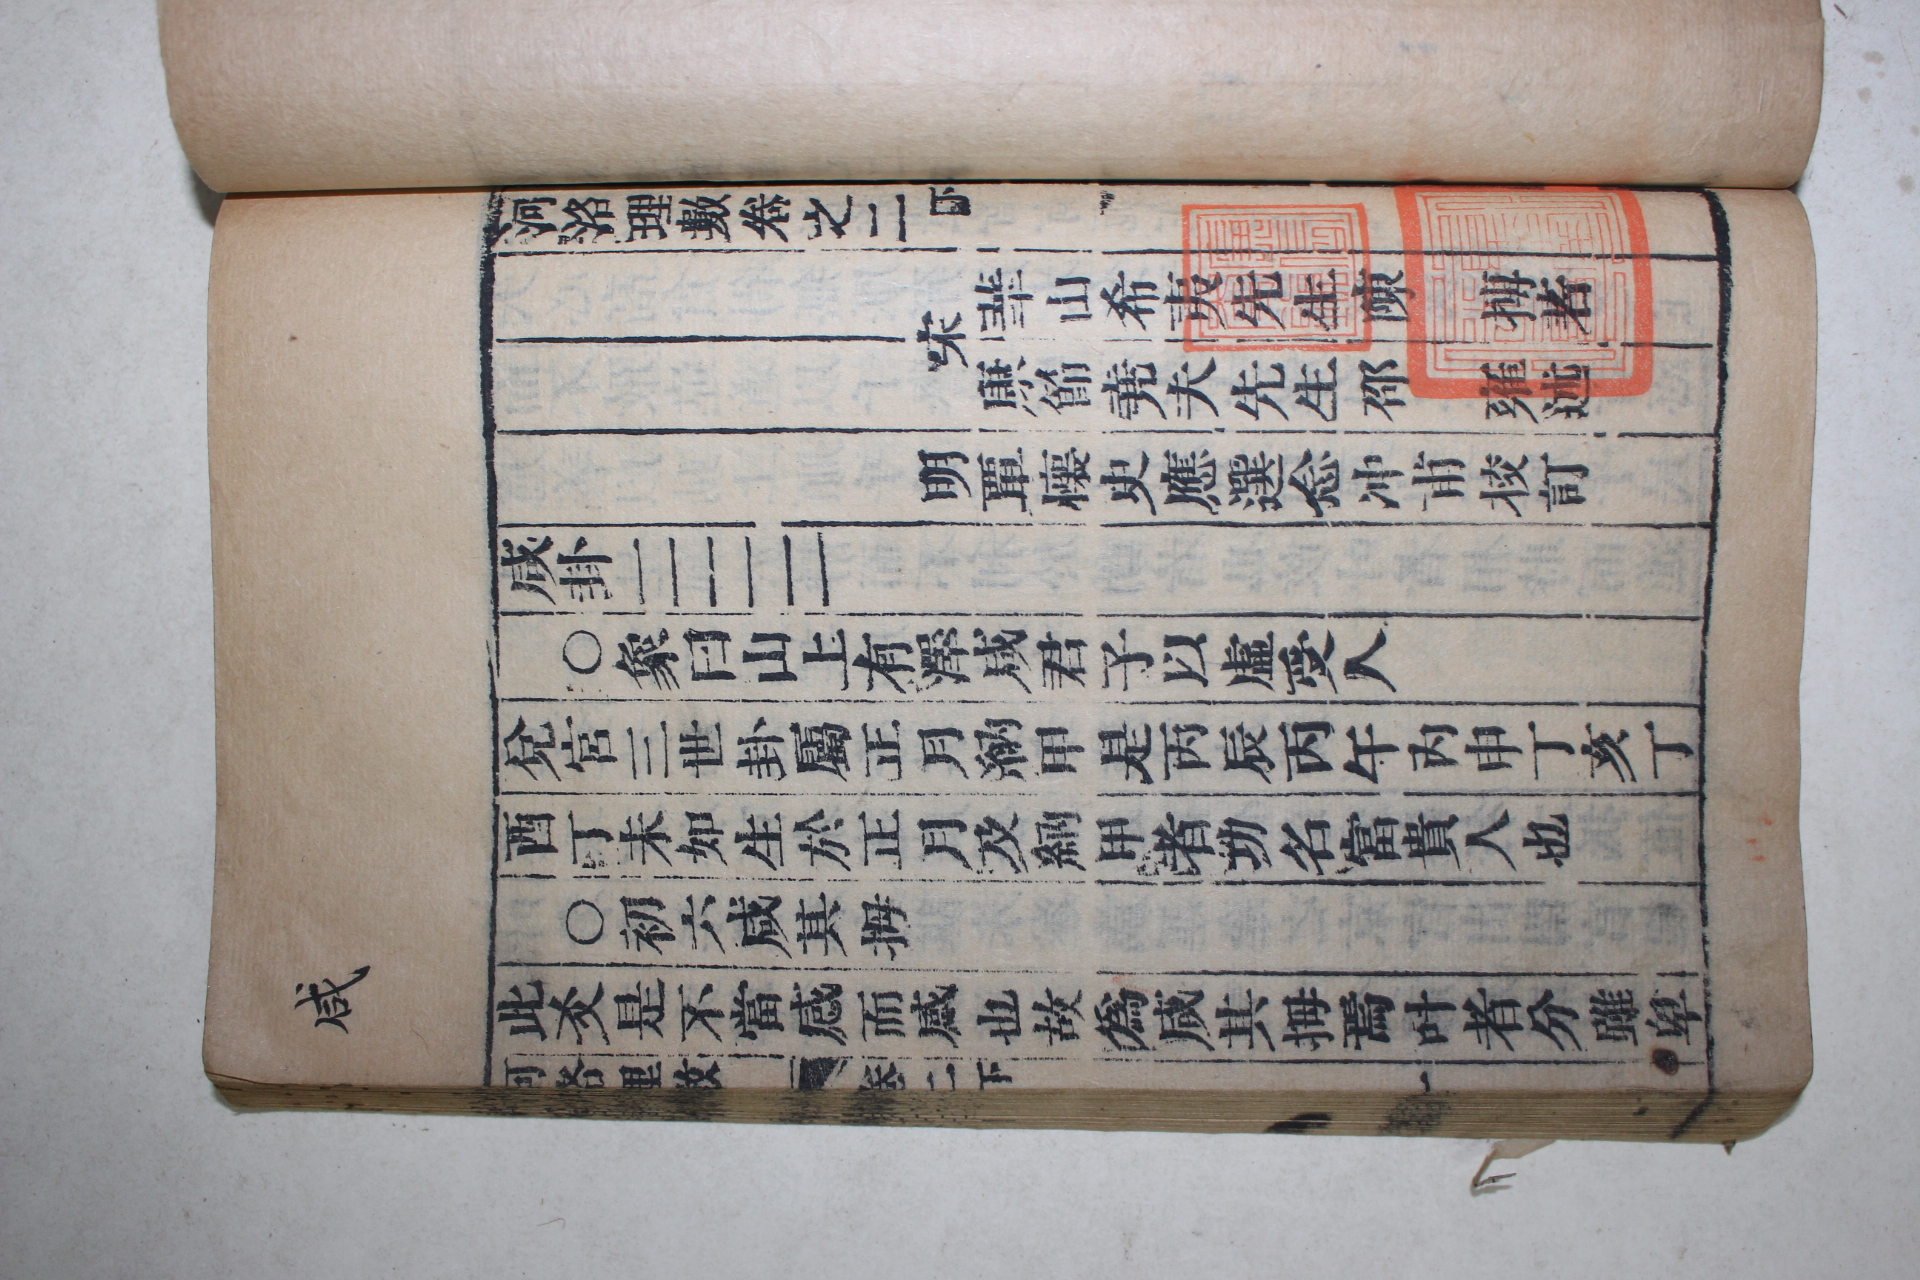 咸
河洛理數卷之二下
宋
華山希夷先生陳摶著
康節堯夫先生邵雍述
明覃懷史應選念冲甫校訂
咸卦
○象曰山上有澤咸君子以虛受人
兌宮三世卦屬正月納甲是丙辰丙午丙申丁亥丁
酉丁未如生於正月及納甲者功名富貴人也
○初六咸其拇
此爻是不當感而感也故為咸其拇焉叶者分雖卑
河洛理數 卷二下 一